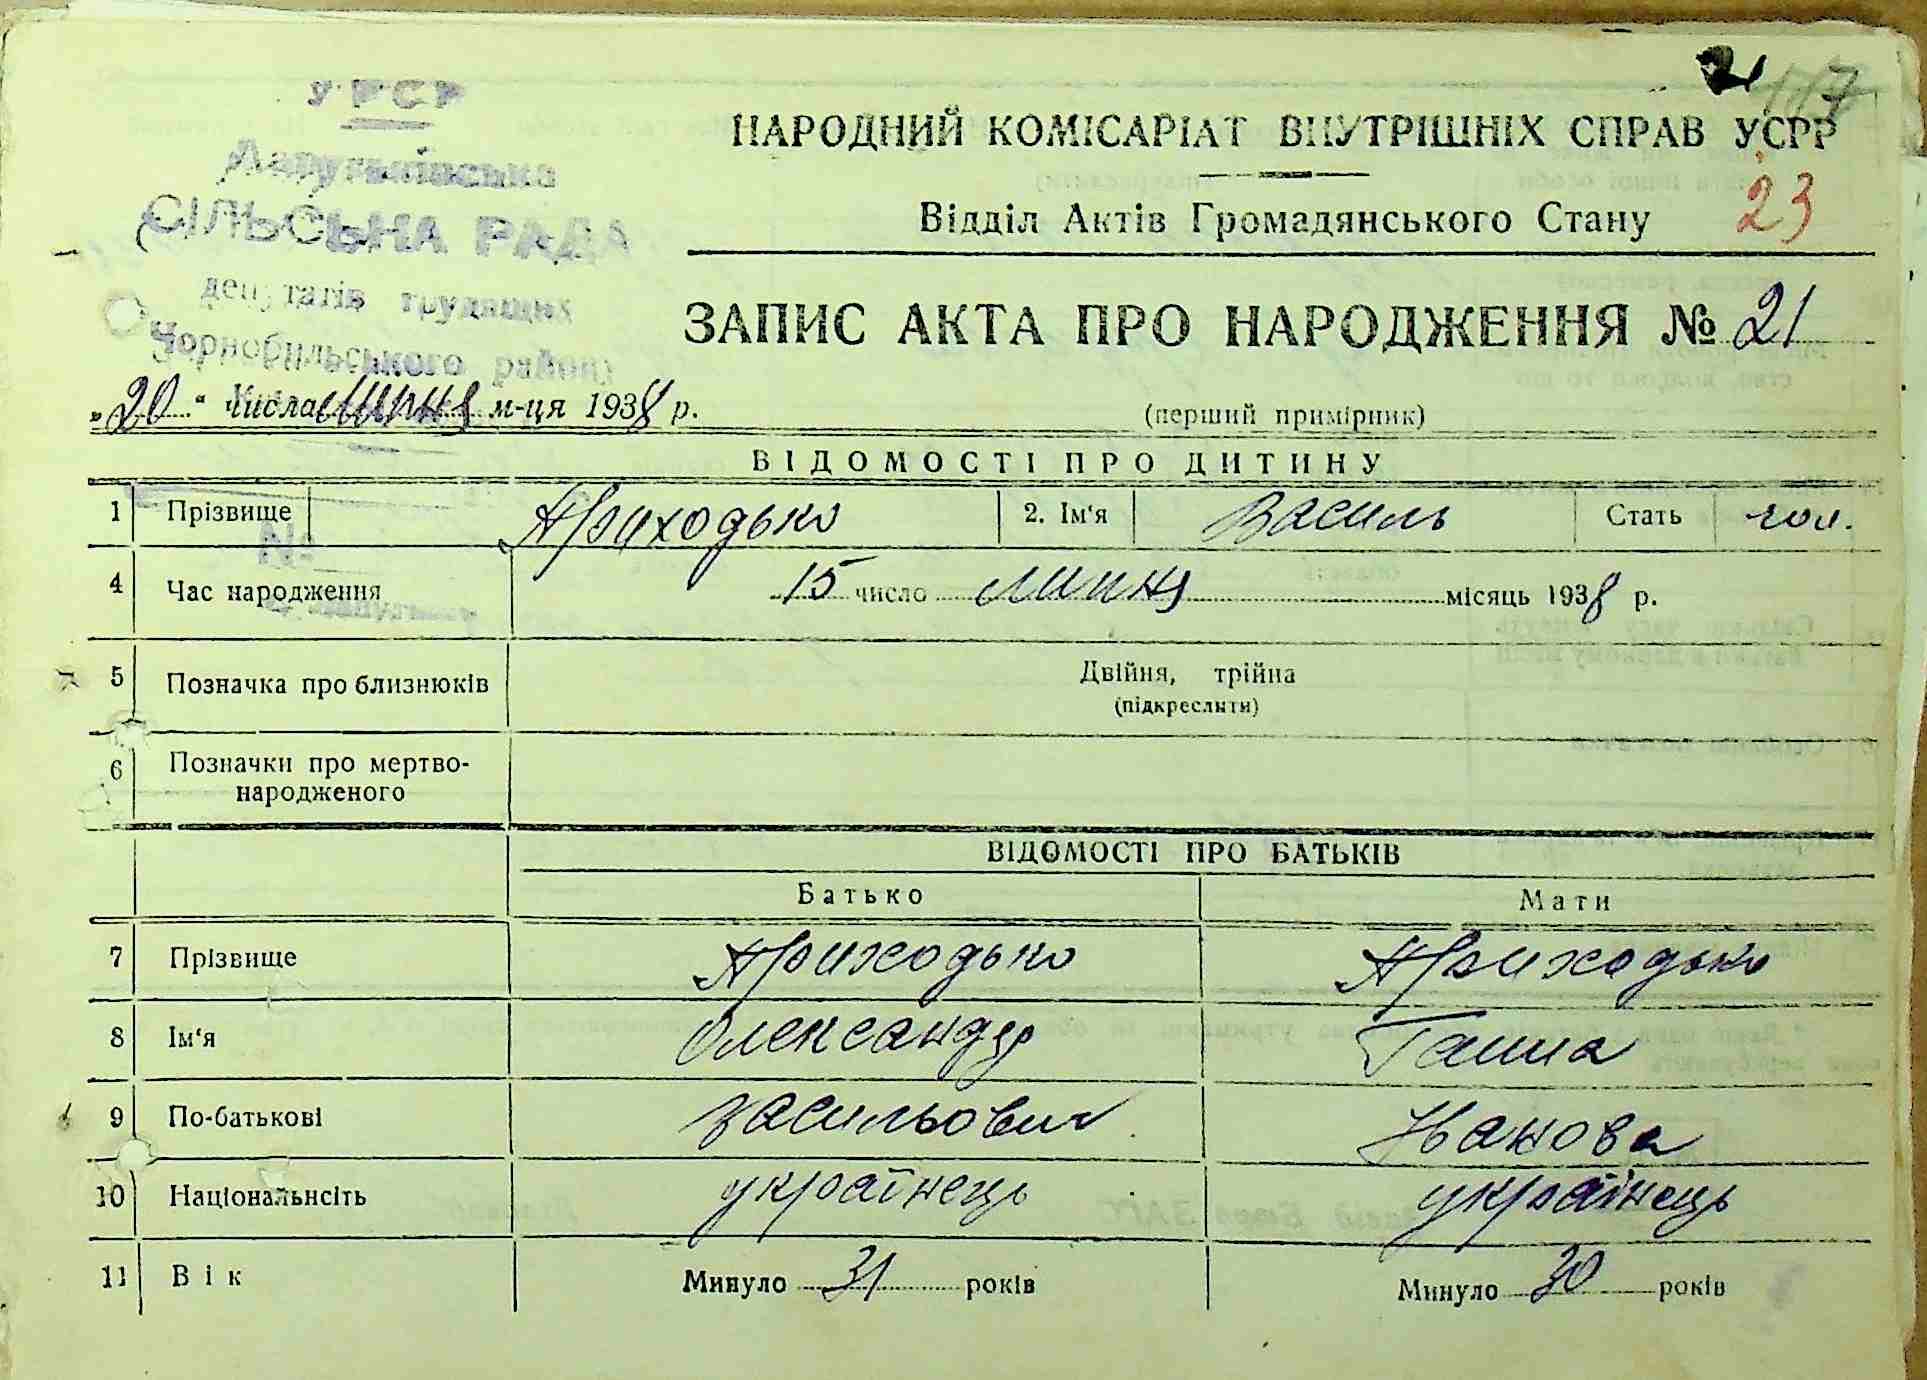 УРСР
СІЛЬСЬКА РАДА
депутатів трудящих
Чорнобильського району
№
21
23
НАРОДНИЙ КОМІСАРІАТ ВНУТРІШНІХ СПРАВ УСРР
Відділ Актів Громадянського Стану
ЗАПИС АКТА ПРО НАРОДЖЕННЯ № 21
„20“ числа липня м-ця 1938 р.
(перший примірник)
ВІДОМОСТІ ПРО ДИТИНУ
1 Прізвище Приходько 2. Ім'я Василь Стать чол.
4 Час народження 15 число липня місяць 1938 р.
5 Позначка про близнюків Двійня, трійна
(підкреслити)
6 Позначки про мертво-
народженого
ВІДОМОСТІ ПРО БАТЬКІВ
Батько Мати
7 Прізвище Приходько Приходько
8 Ім'я Олександр Ганна
9 По-батькові Васильович Иванова
10 Національнсіть українець українець
11 Вік Минуло 31 років Минуло 30 років